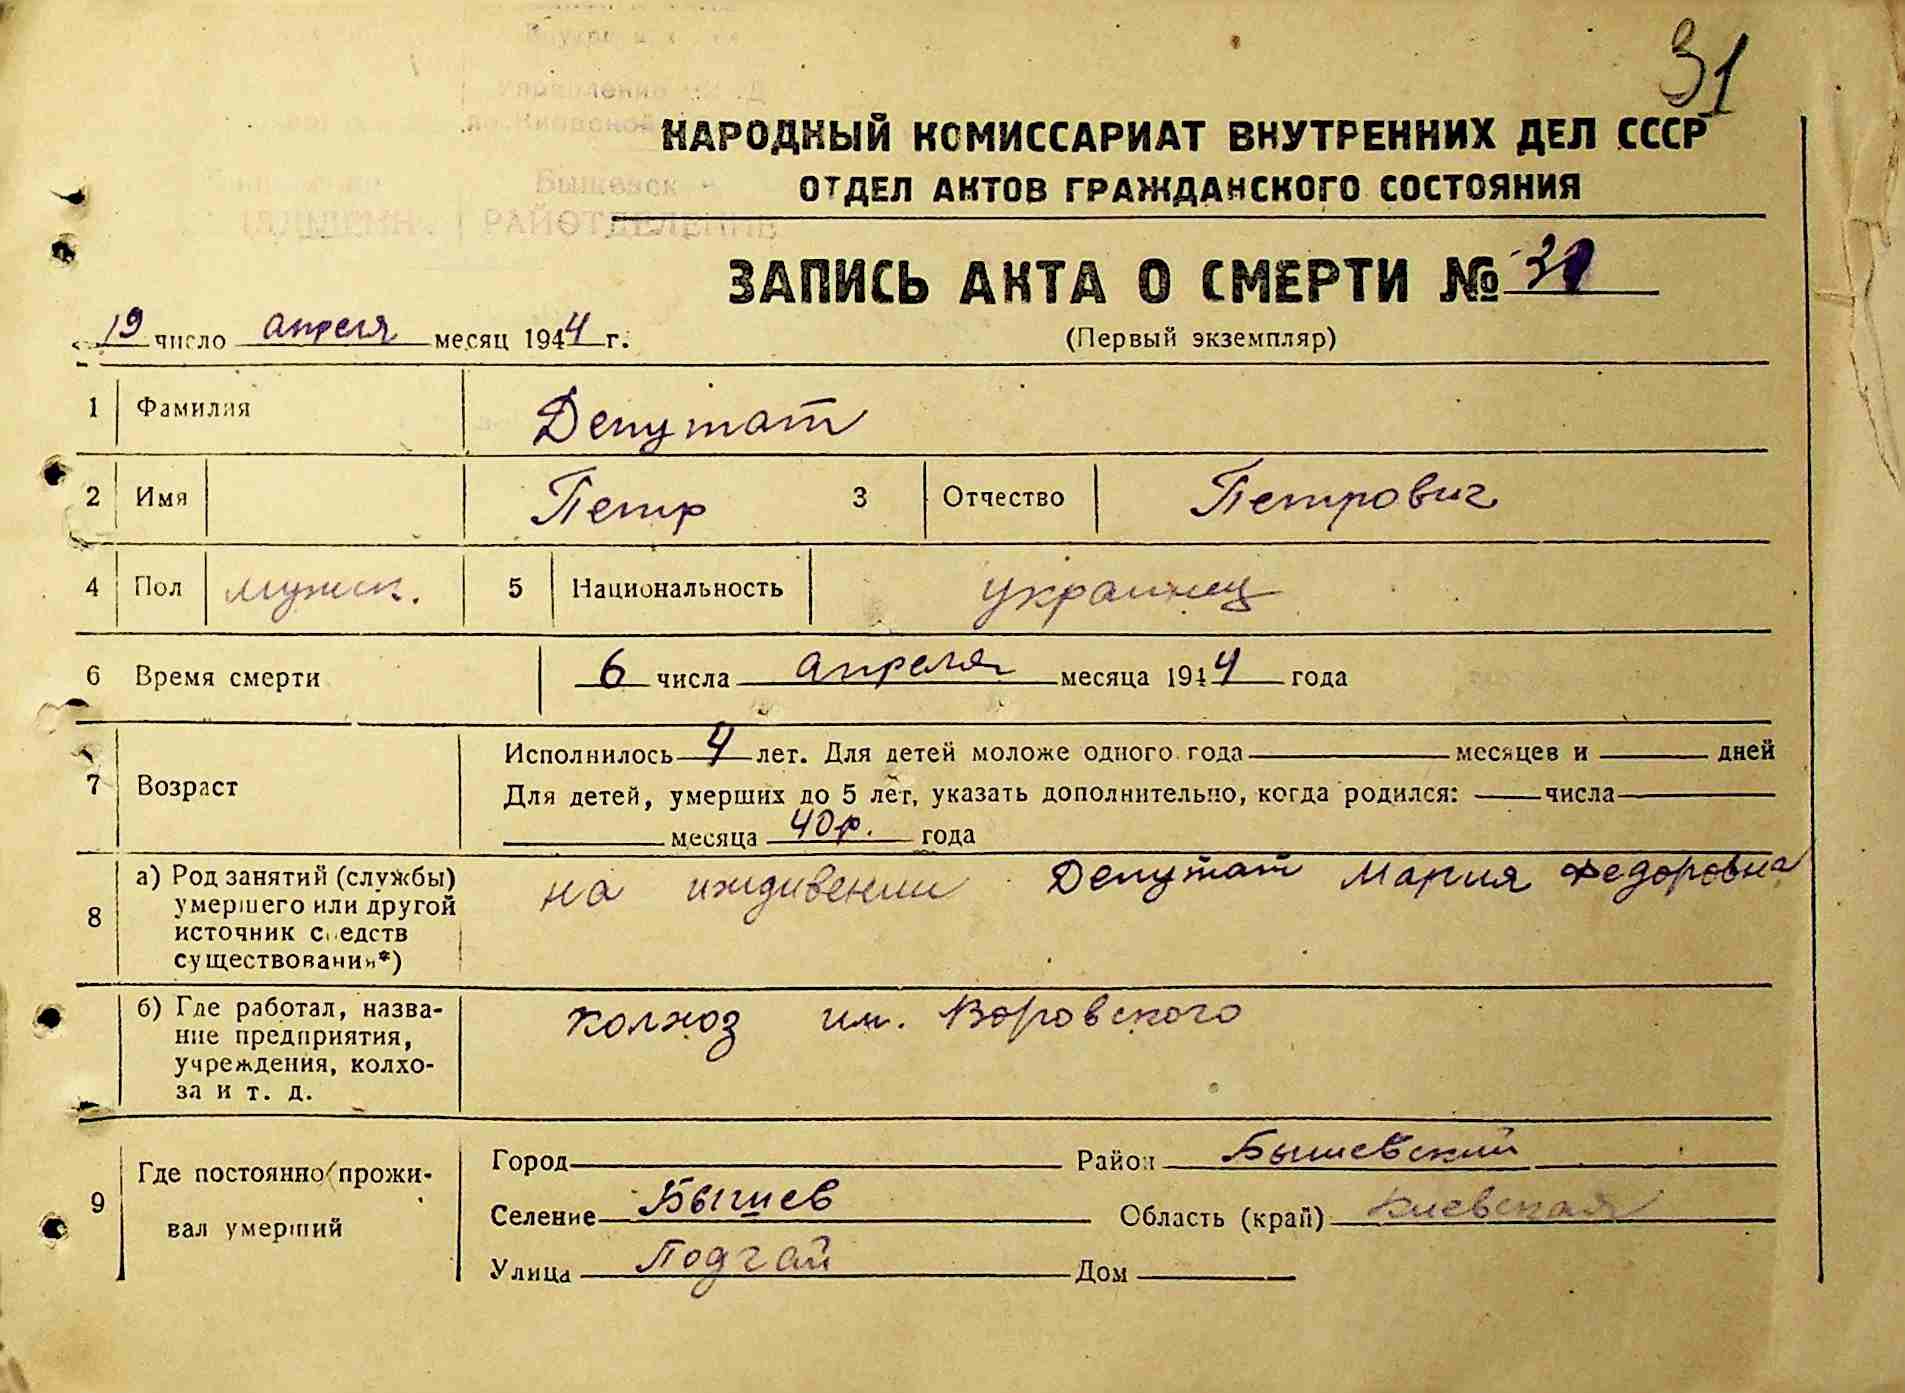 31
НАРОДНЫЙ КОМИССАРИАТ ВНУТРЕННИХ ДЕЛ СССР
ОТДЕЛ АКТОВ ГРАЖДАНСКОГО СОСТОЯНИЯ
Бышевск
РАЙОТДЕЛЕНИЕ
ЗАПИСЬ АКТА О СМЕРТИ №
19 число апреля месяц 1944 г.
(Первый экземпляр)
1 Фамилия Депутат
2 Имя Петр 3 Отчество Петрович
4 Пол мужск. 5 Национальность украинец
6 Время смерти 6 числа апреля месяца 1944 года
7 Возраст Исполнилось 4 лет. Для детей моложе одного года месяцев и дней
Для детей, умерших до 5 лет, указать дополнительно, когда родился: числа
месяца 40р. года
8 а) Род занятий (службы) на иждивении Депутат Мария Федоровна
умершего или другой
источник средств
существования*)
б) Где работал, назва- колхоз им. Воровского
ние предприятия,
учреждения, колхо-
за и т. д.
9 Где постоянно прожи-
вал умерший
Город Район Бышевский
Селение Бышев Область (край) Киевская
Улица Подгай Дом